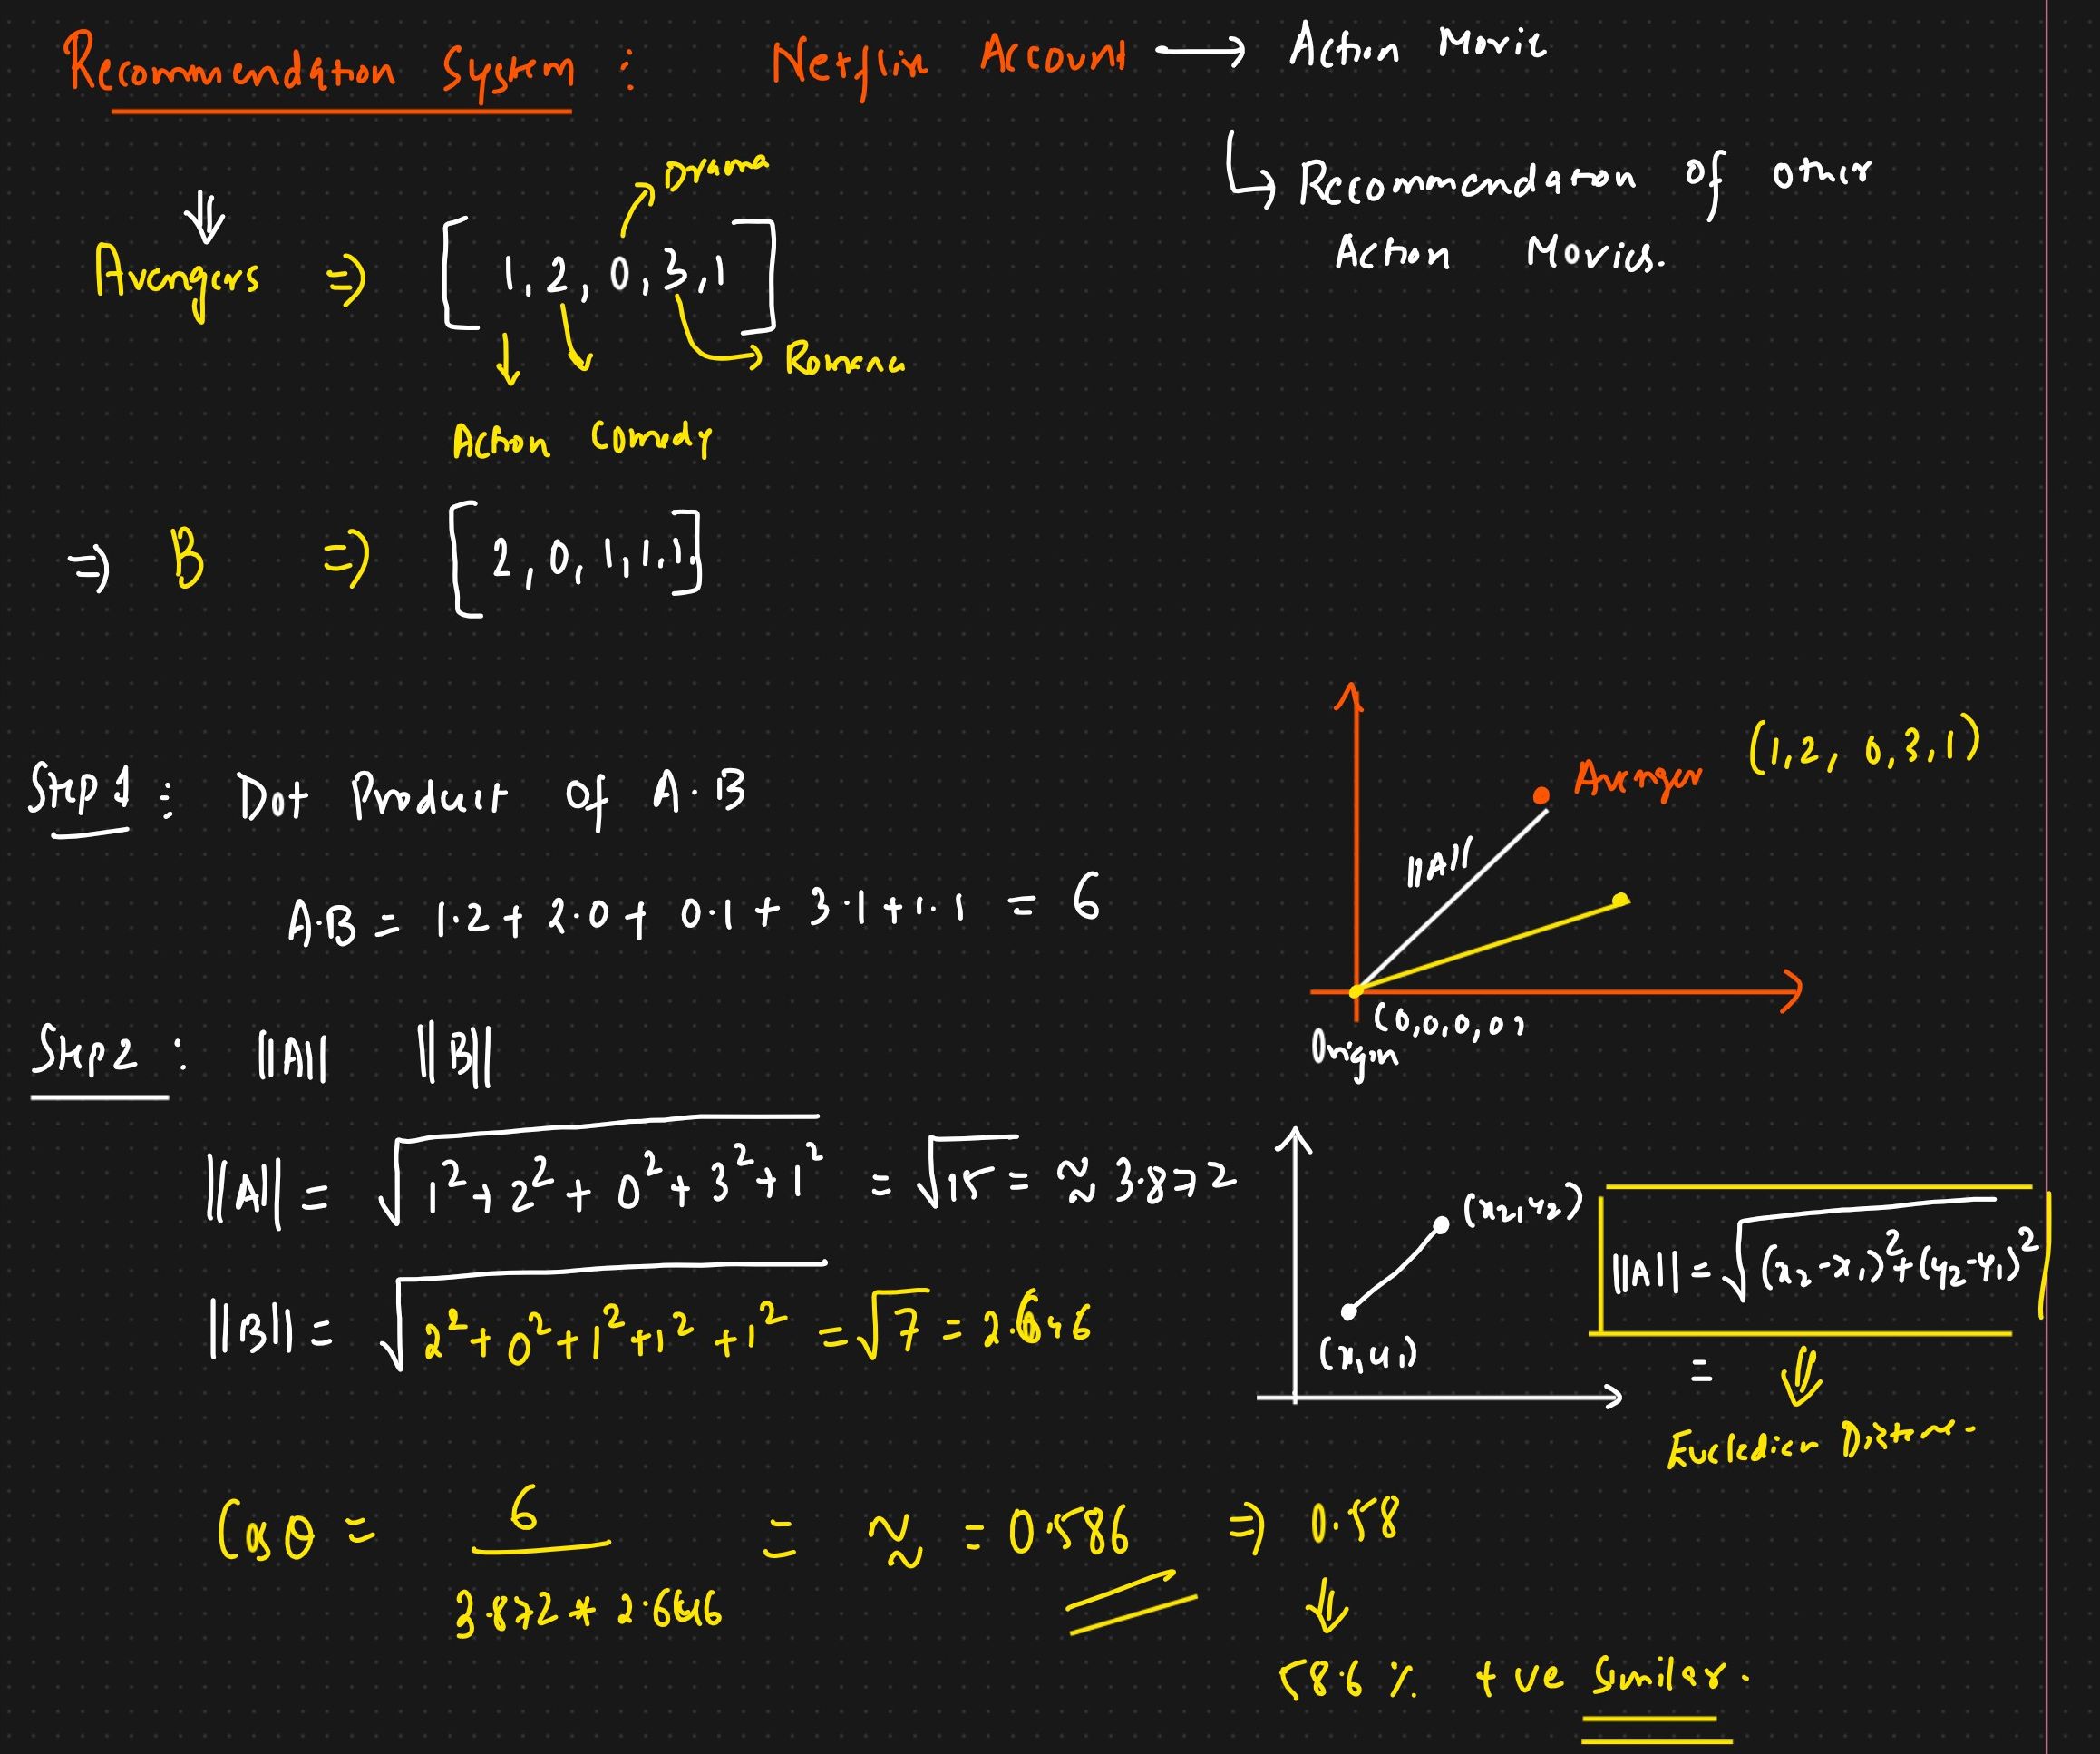 Recommendation System : Netflix Account → Action Movie
↳ Recommendation of other
Action Movies.
Drama
Avengers ⇒ [1, 2, 0, 3, 1]
Romanc
Action Comedy
⇒ B ⇒ [2, 0, 1, 1, 1]
Step 1 : Dot Product of A·B
A·B = 1·2 + 2·0 + 0·1 + 3·1 + 1·1 = 6
Avenger (1, 2, 0, 3, 1)
||A||
(0,0,0,0)
Origin
Step 2 : ||A|| ||B||
||A|| = √1² + 2² + 0² + 3² + 1² = √15 = ≈ 3.872
||B|| = √2² + 0² + 1² + 1² + 1² = √7 = 2.646
(x2, y2)
(x1 y1)
||A|| = √(x2 - x1)² + (y2 - y1)²
=
Eucledian Distance
Cos θ = 6 / 3.872 * 2.646 = ≈ = 0.586 ⇒ 0.58
58.6 % +ve Similar.